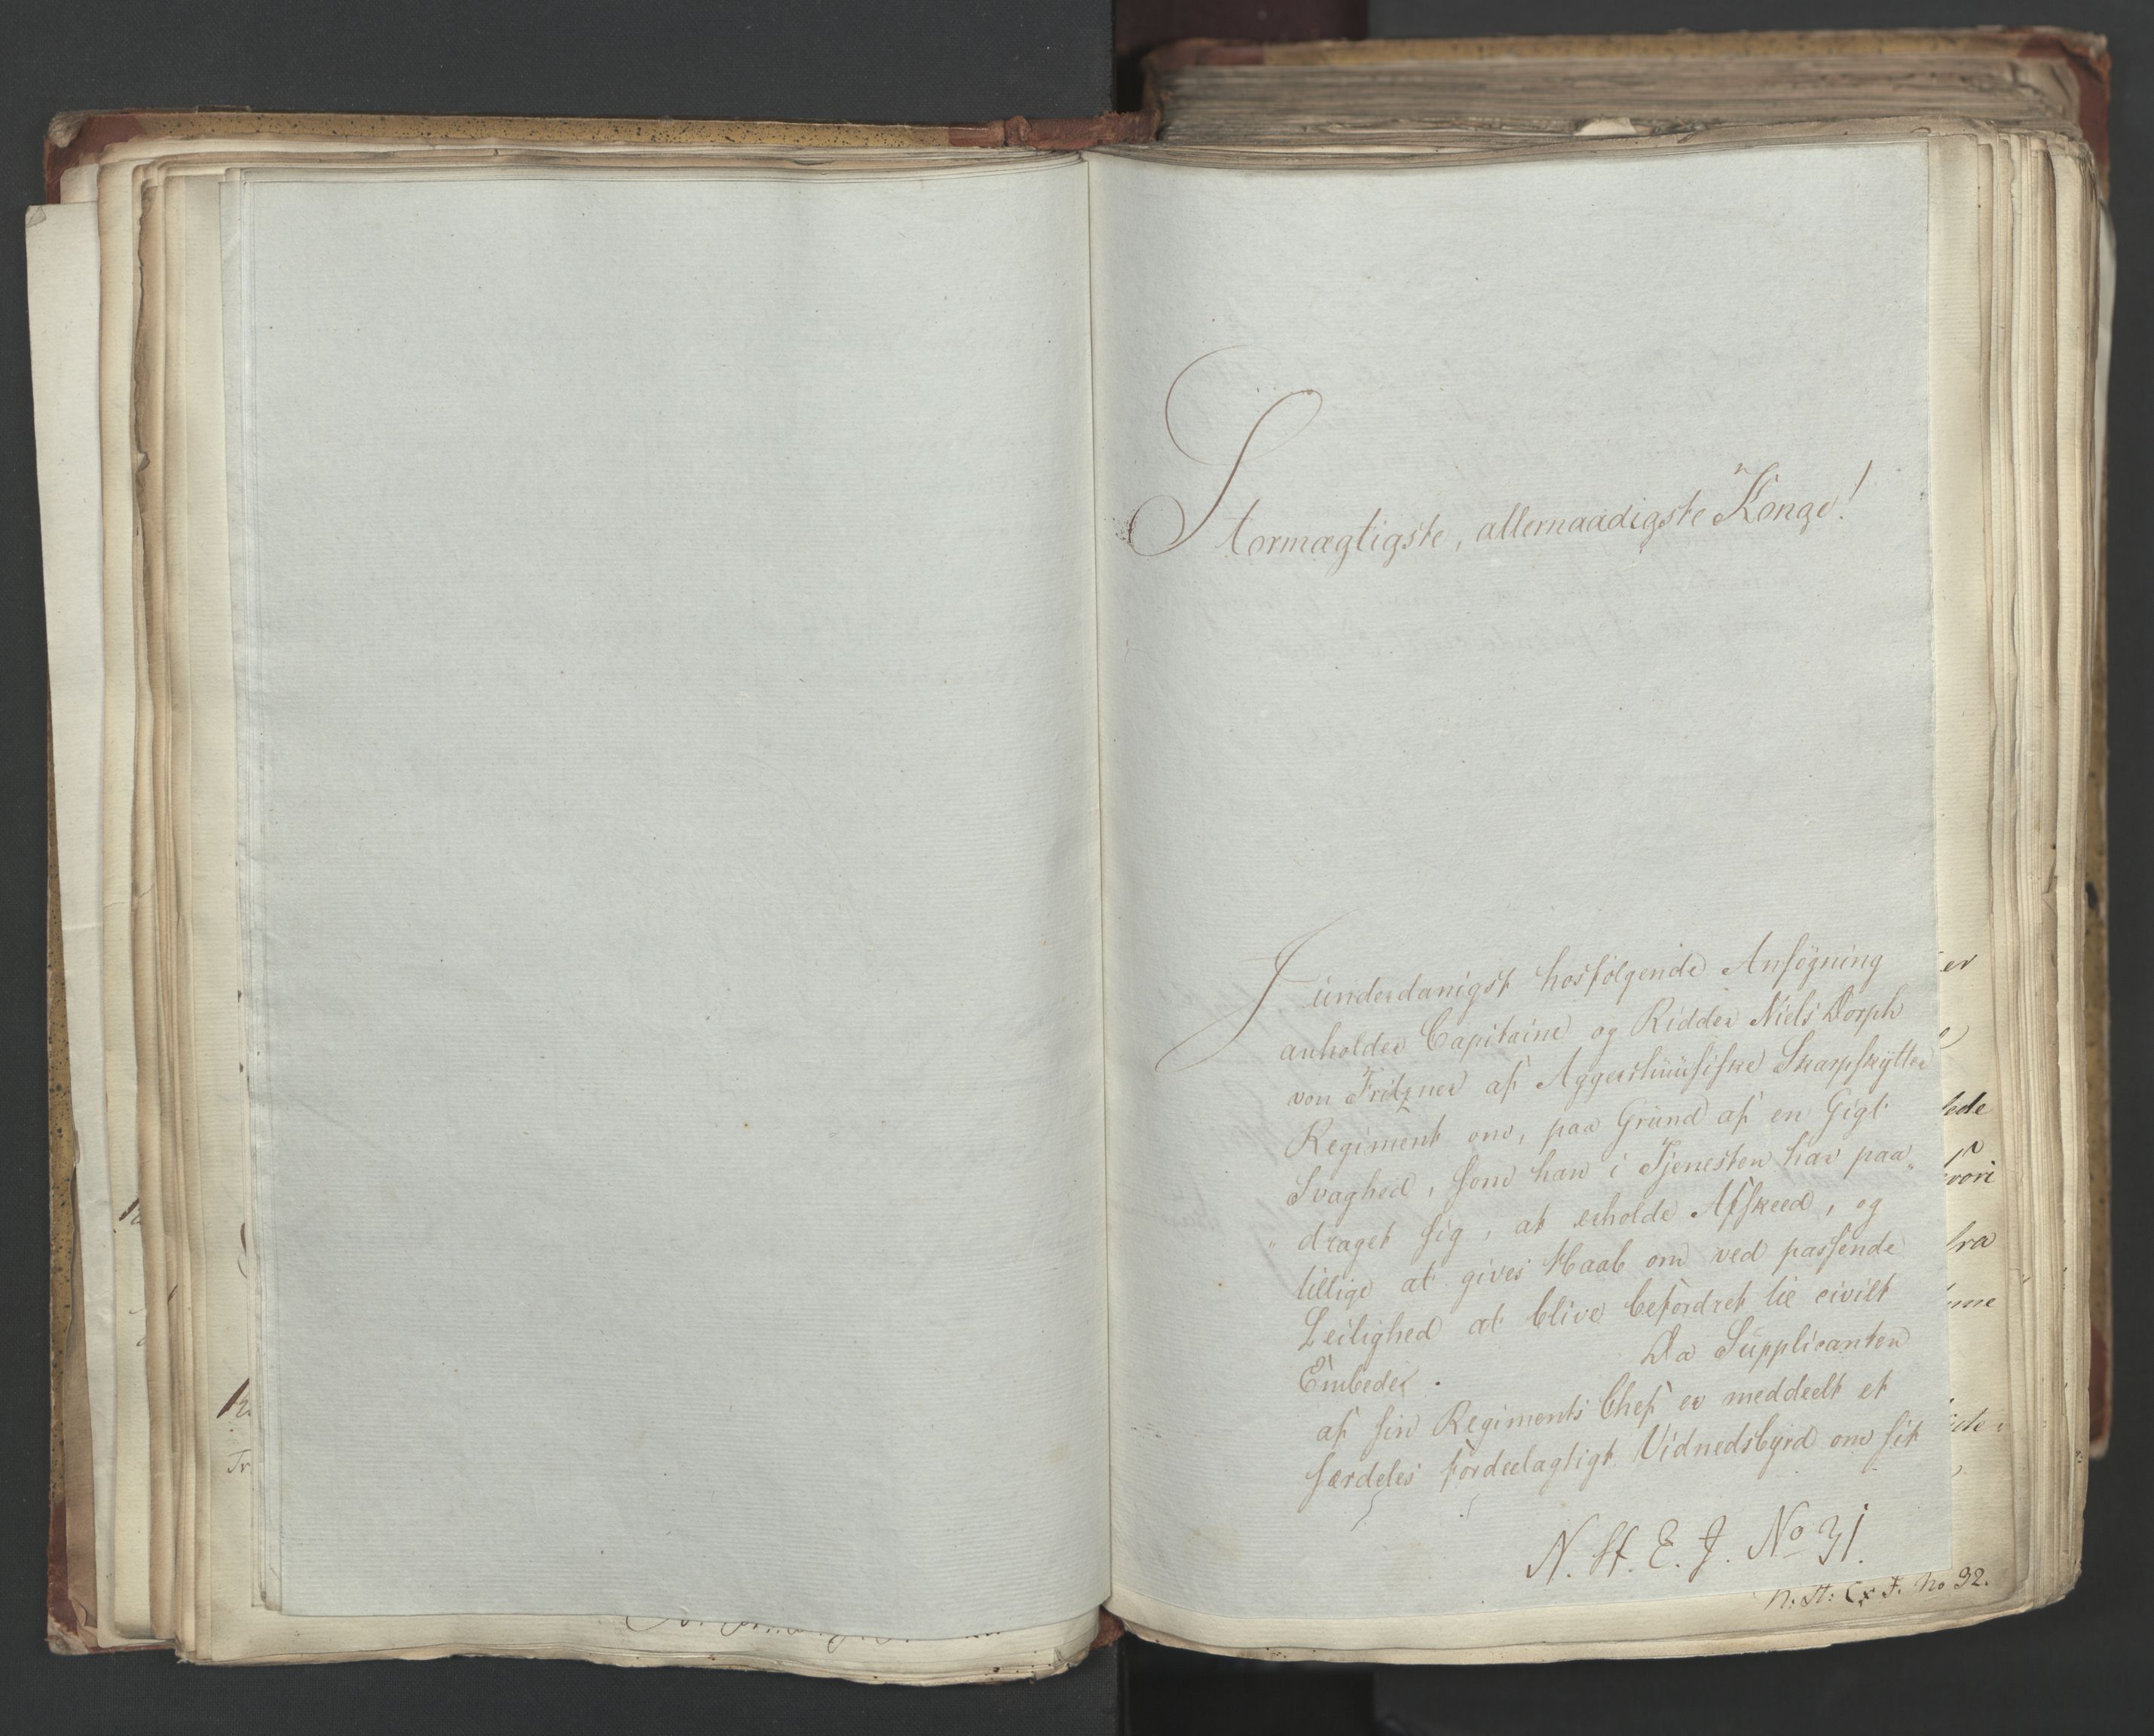 Stormægtigste, allernaadigste Konge!
I underdanigst hosfølgende Ansøgning
anholder Capitaine og Ridder Niels Dorph
von Fritzner af Aggershuusiske Skarpskytter
Regiment om, paa Grund af en Gigt
Svaghed, som han i Tjenesten har paa„
„draget sig, at erholde Afskeed, og
tillige at gives Haab om ved passende
Leilighed at blive befordret til civilt
Embede.
Da Supplicanten
af sin Regiments Chef er meddeelt et
særdeles fordeelagtigt Vidnedsbyrd om sit
N. St. E. J. No 31.
N: St: Ex J. No 32.